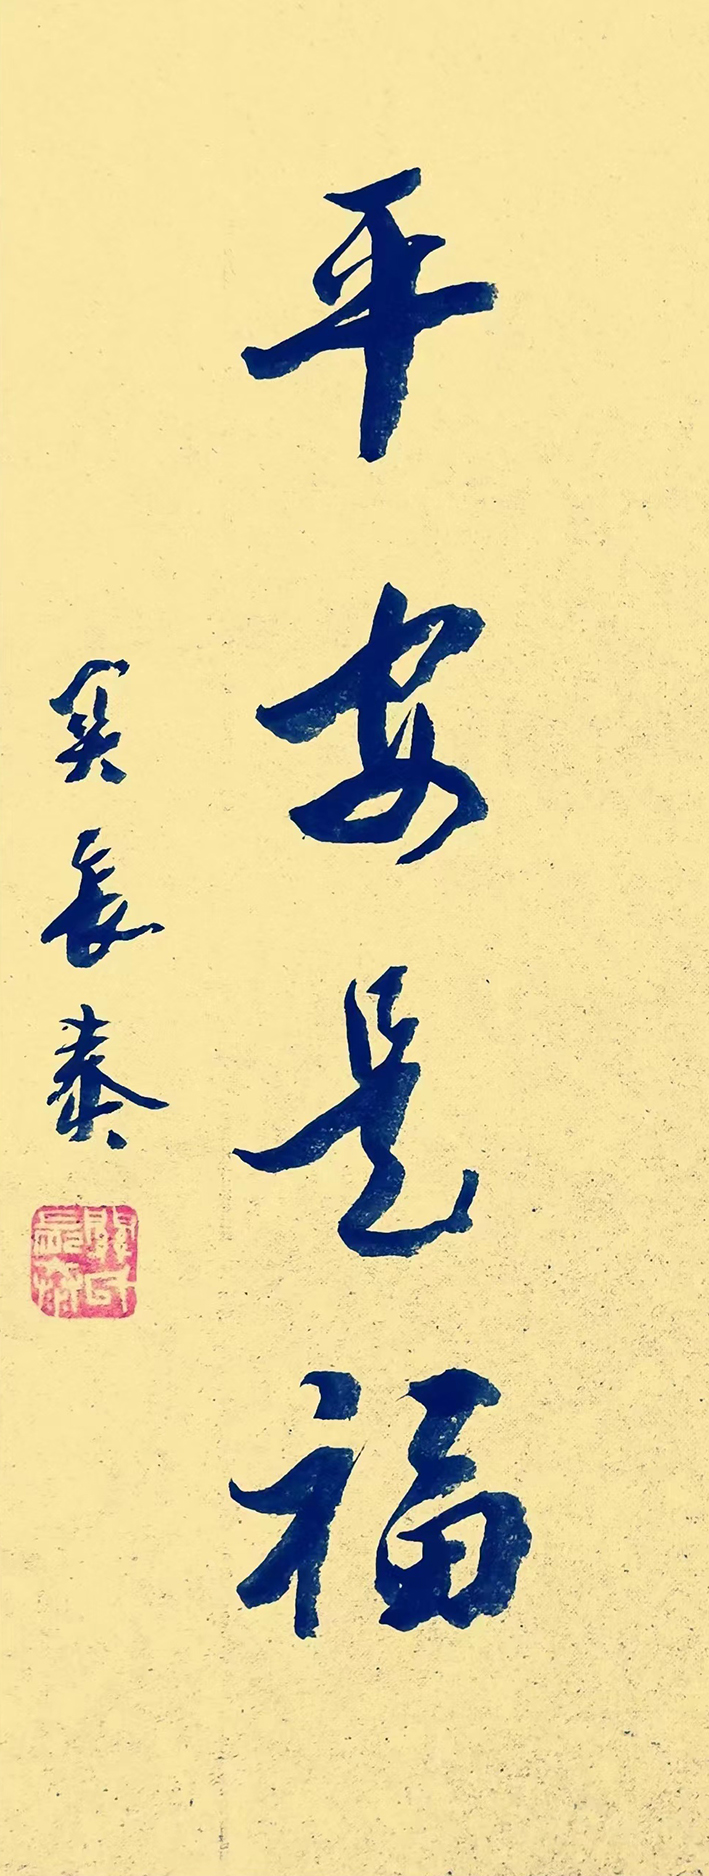 平安是福
吴長泰